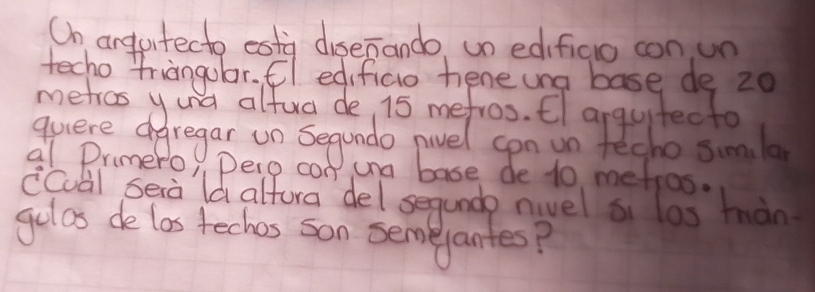 Un arquitecto está diseñando un edificio con un
techo triángular. El edificio tiene una base de 20
metros y una altura de 15 metros. El arquitecto
quiere agregar un Segundo nivel con un techo similar
al Primero, Pero con una base de 10 metros.
¿Cuál será la altura del segundo nivel si los trián-
gulos de los techos son semejantes?